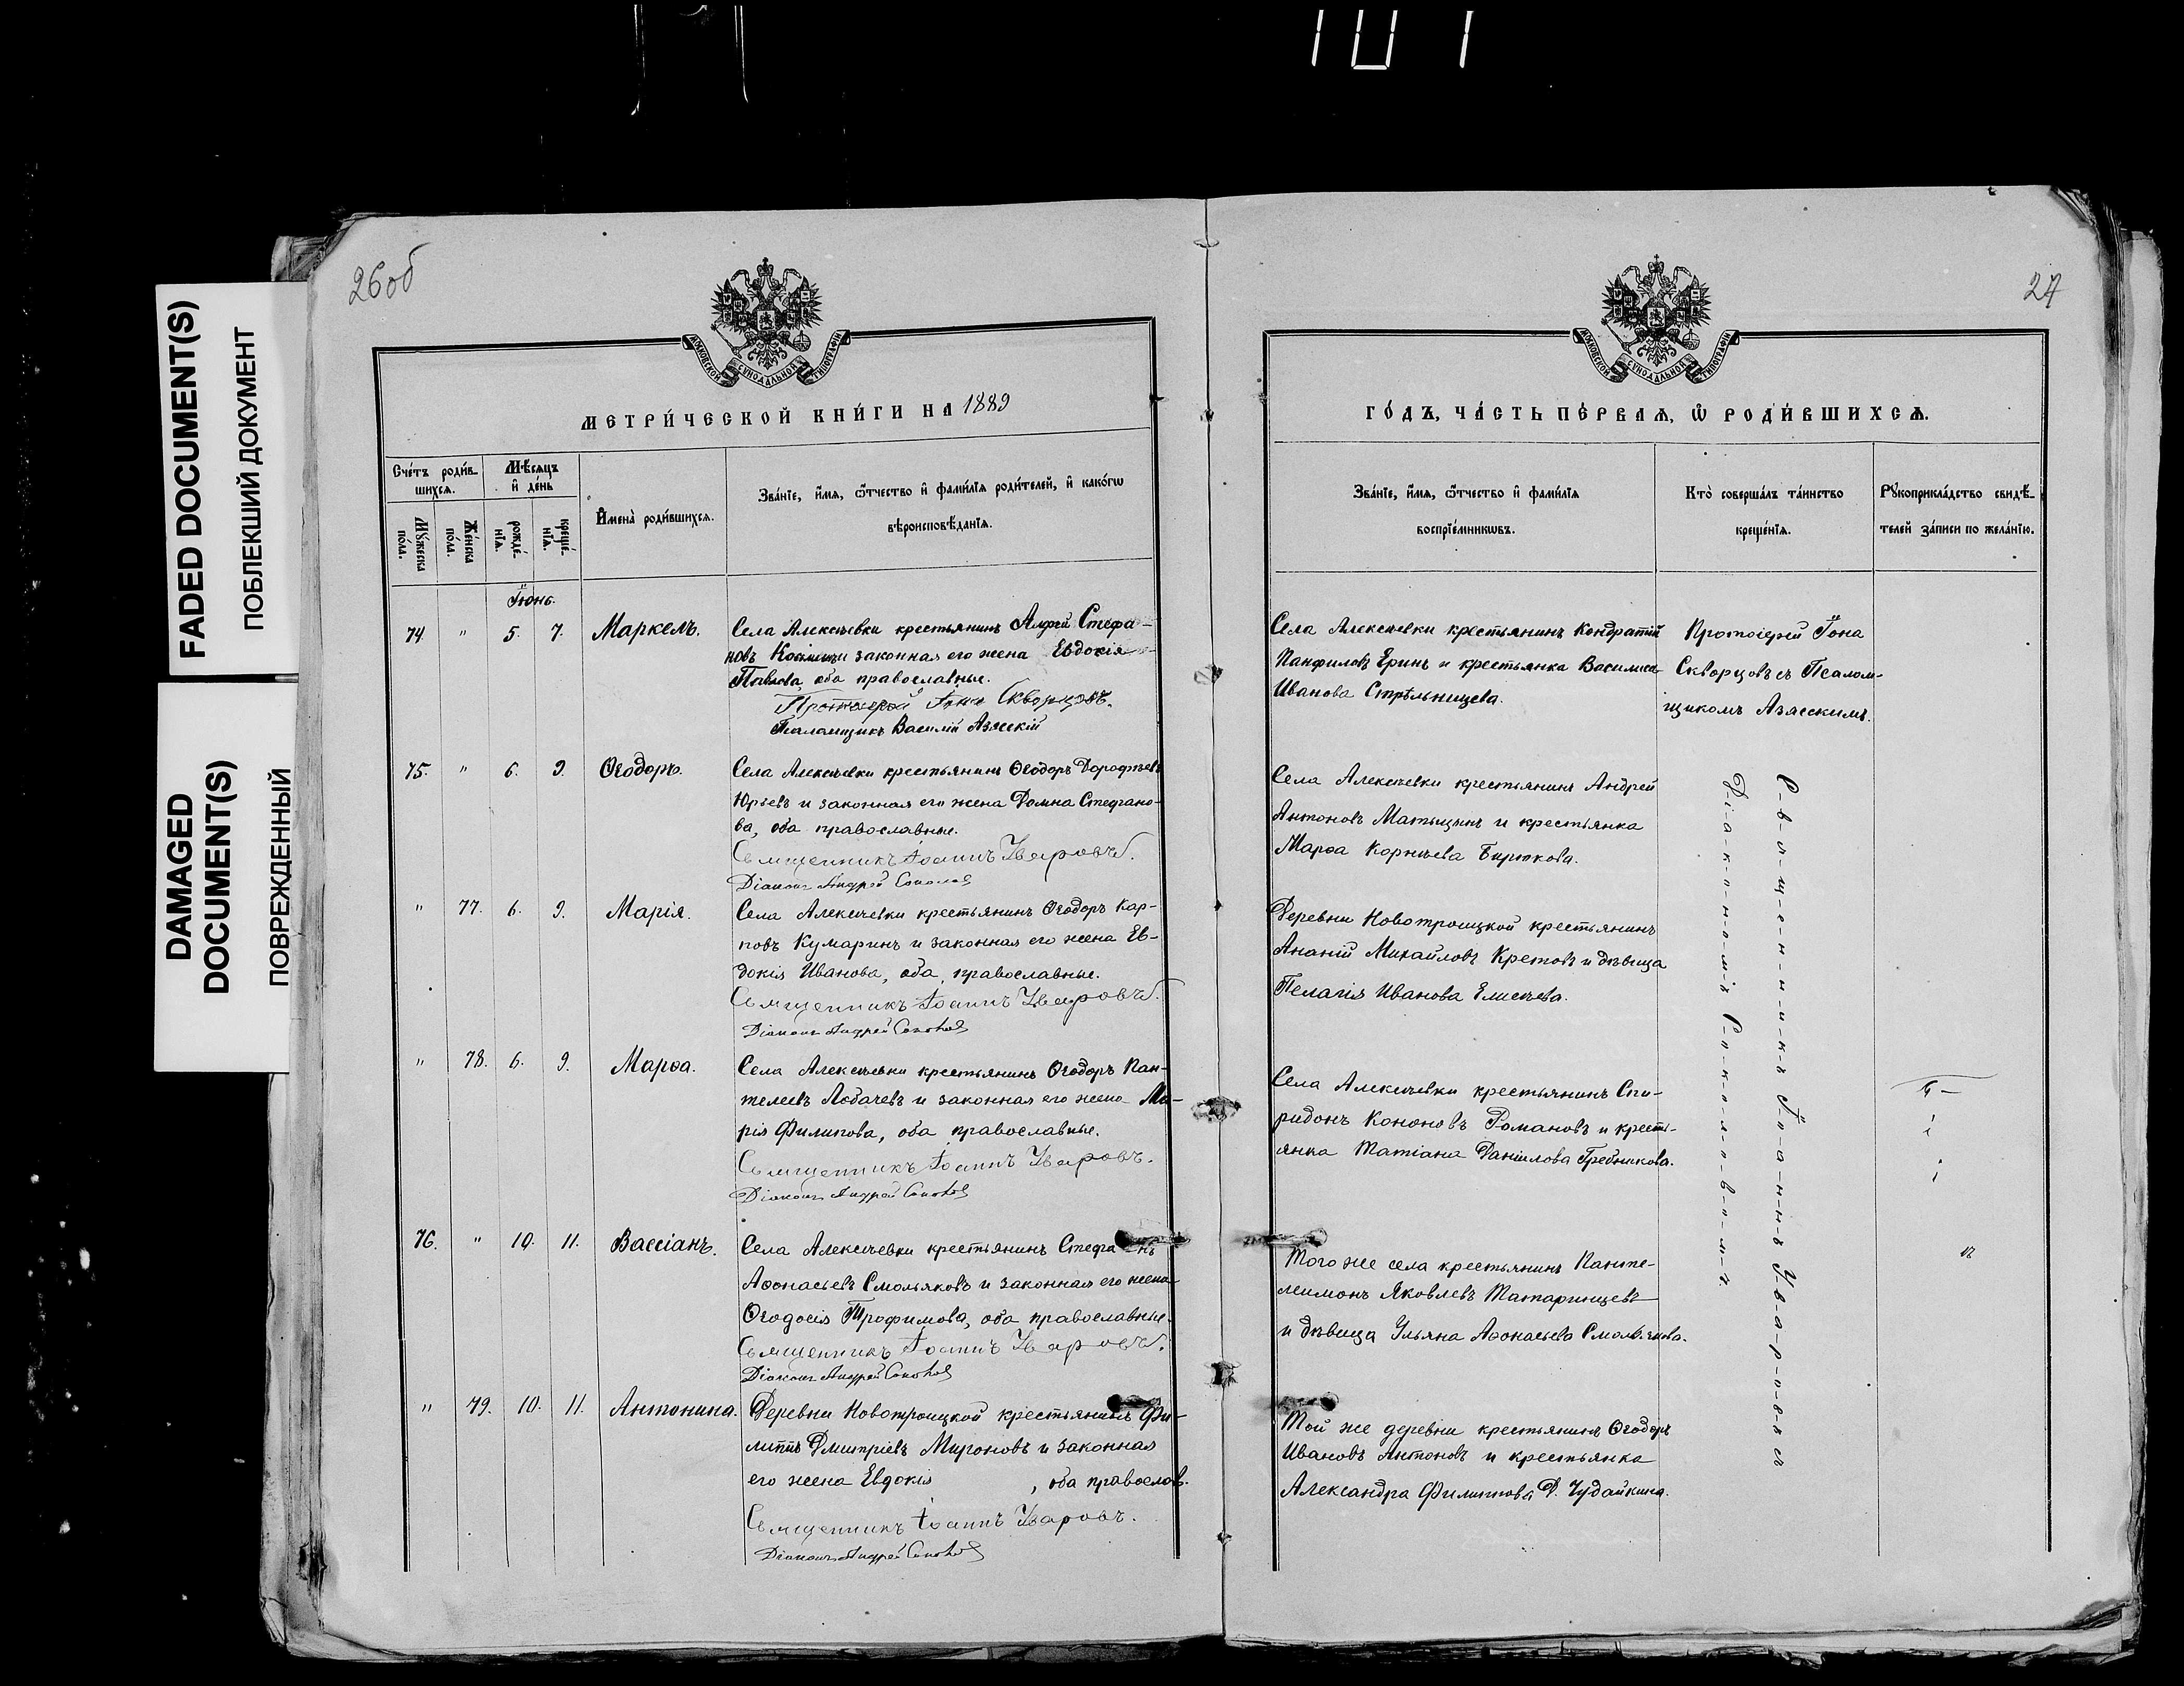 101
FADED DOCUMENT(S)
ПОБЛЕКШИЙ ДОКУМЕНТ
DAMAGED
DOCUMENT(S)
ПОВРЕЖДЕННЫЙ
26об
МОСКОВСКОЙ СѴНОДАЛЬНОЙ ТИПОГРАФІИ
МЕТРИ́ЧЕСКОЙ КНИ́ГИ НА 1889
Сче́тъ роди́в-
шихсѧ.
Мѣ́сѧцъ
и҆ де́нь
И҆мена̀ роди́вшихсѧ.
Зва́нїе, и҆́мѧ, ѻ҆́тчество и҆ фами́лїѧ роди́телей, и҆ како́гѡ
вѣроисповѣ́данїѧ.
Мꙋ́жеска
по́ла.
Же́нска
по́ла.
рожде́-
нїѧ.
креще́-
нїѧ.
Іюнь.
74. " 5. 7. Маркелъ.
Села Алексѣевки крестьянинъ Алфей Стефа-
новъ законная его жена Евдокія
Павлова, оба православные.
Протоіерей Іона Скворцовъ.
Псаломщикъ Василій Азясскій
75. " 6. 9. Ѳеодоръ.
Села Алексѣевки крестьянинъ Ѳеодоръ Дорофѣевъ
Юрьевъ и законная его жена Домна Стефано-
ва, оба православные.
Священникъ Іоаннъ Уваровъ.
Діаконъ Андрей Соколов
" 77. 6. 9. Марія.
Села Алексѣевки крестьянинъ Ѳеодоръ Кар-
повъ Кумаринъ и законная его жена Ев-
докія Иванова, оба православные.
Священникъ Іоаннъ Уваровъ.
Діаконъ Андрей Соколов
" 78. 6. 9. Марѳа.
Села Алексѣевки крестьянинъ Ѳеодоръ Пан-
телеевъ Лобачевъ и законная его жена Ма-
рія Филипова, оба православные.
Священникъ Іоаннъ Уваровъ.
Діаконъ Андрей Соколов
76. " 10. 11. Вассіанъ.
Села Алексѣевки крестьянинъ Стефанъ
Аѳонасьевъ Смольяковъ и законная его жена
Ѳеодосія Трофимова, оба православные.
Священникъ Іоаннъ Уваровъ.
Діаконъ Андрей Соколов
" 79. 10. 11. Антонина.
Деревни Новотроицкой крестьянинъ Фи-
липпъ Дмитріевъ Мироновъ и законная
его жена Евдокія , оба православ.
Священникъ Іоаннъ Уваровъ.
Діаконъ Андрей Соколов
27
МОСКОВСКОЙ СѴНОДАЛЬНОЙ ТИПОГРАФІИ
ГО́ДЪ, ЧА́СТЬ ПЕ́РВАѦ, Ѡ҆ РОДИ́ВШИХСѦ.
Зва́нїе, и҆́мѧ, ѻ҆́тчество и҆ фами́лїѧ
воспрїе́мникѡвъ.
Кто̀ соверша́лъ та́инство
креще́нїѧ.
Рꙋкоприкла́дство свидѣ́-
телей за́писи по жела́нїю.
Села Алексѣевки крестьянинъ Кондратій
Панфиловъ Еринъ и крестьянка Василиса
Иванова Стрѣльницева.
Протоіерей Іона
Скворцовъ съ Псалом-
щикомъ Азясскимъ.
Села Алексѣевки крестьянинъ Андрей
Антоновъ Матыцынъ и крестьянка
Марѳа Корнѣева Бирюкова.
Деревни Новотроицкой крестьянинъ
Ананій Михайловъ Кретовъ и дѣвица
Пелагія Иванова Елисѣева.
Села Алексѣевки крестьянинъ Спи-
ридонъ Кононовъ Романовъ и кресть-
янка Татіана Даніилова Гребникова.
Того же села крестьянинъ Панте-
леимонъ Яковлевъ Татаринцевъ
и дѣвица Ульяна Аѳонасьева Смольякова.
Той же деревни крестьянинъ Ѳеодоръ
Ивановъ Антоновъ и крестьянка
Александра Филиппова Д. Чудайкина.
С-в-я-щ-е-н-н-и-к-ъ І-о-а-н-н-ъ У-в-а-р-о-в-ъ с
Д-і-а-к-о-н-о-м-ъ С-о-к-о-л-о-в-ы-м-ъ.